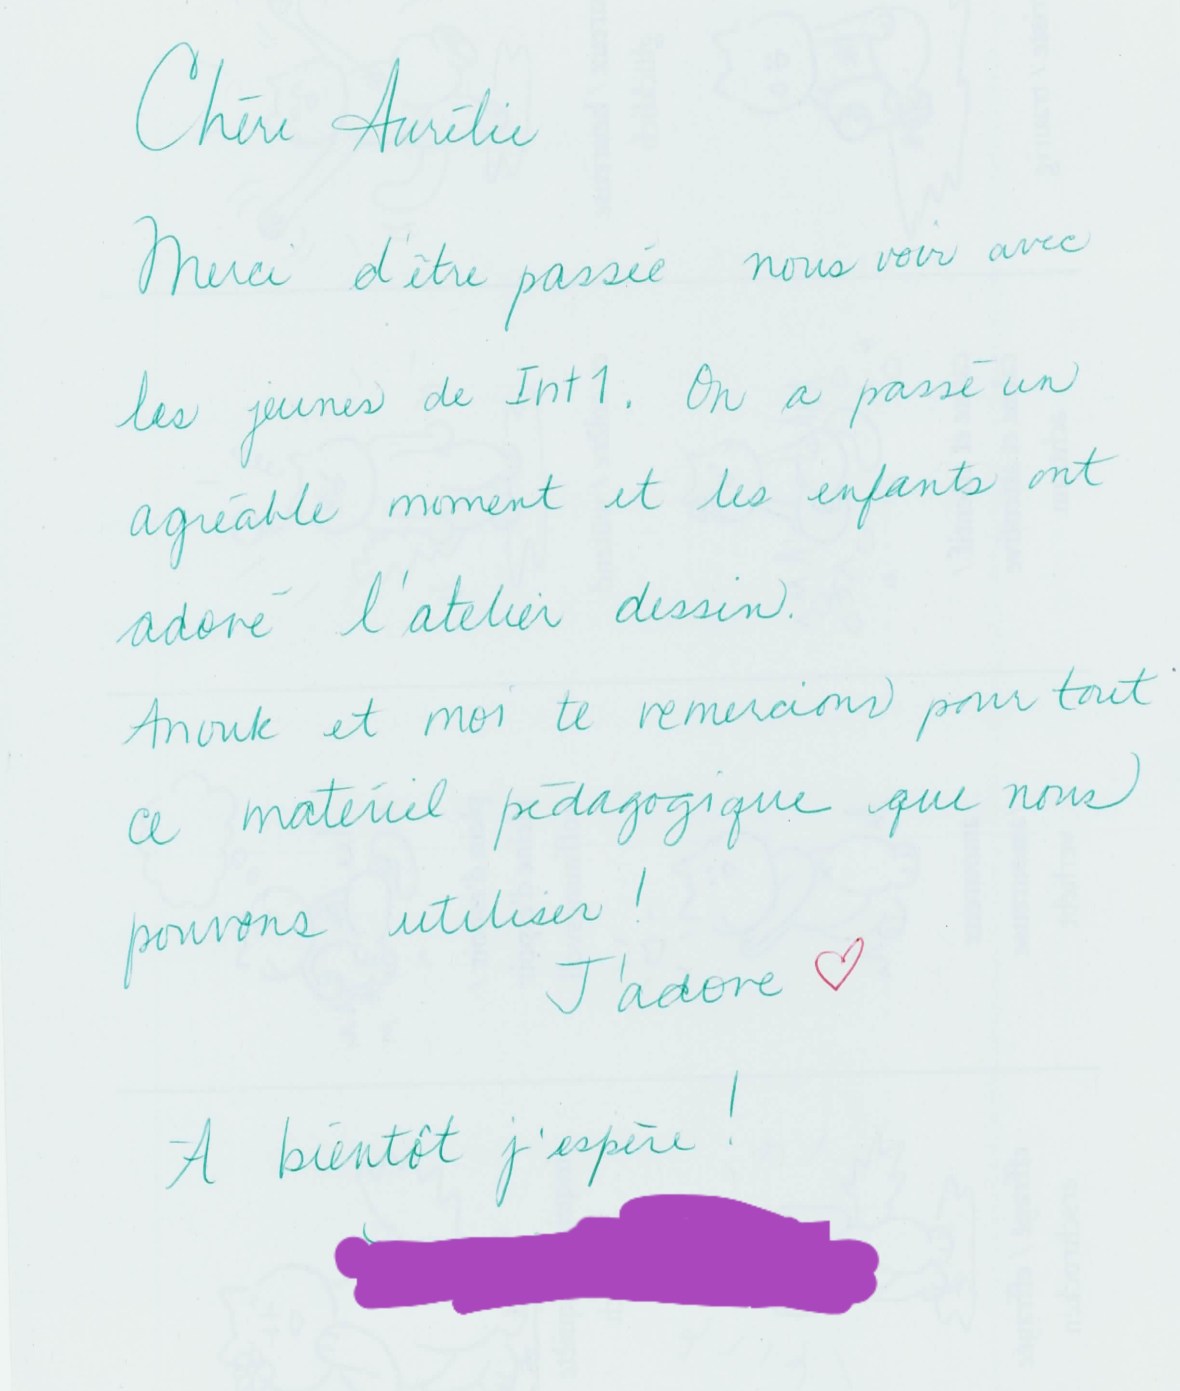 Chère Aurélie
Merci d'être passée nous voir avec
les jeunes de Int 1. On a passé un
agréable moment et les enfants ont
adoré l'atelier dessin.
Anouk et moi te remercions pour tout
ce matériel pédagogique que nous
pouvons utiliser !
J'adore ♡
A bientôt j'espère !